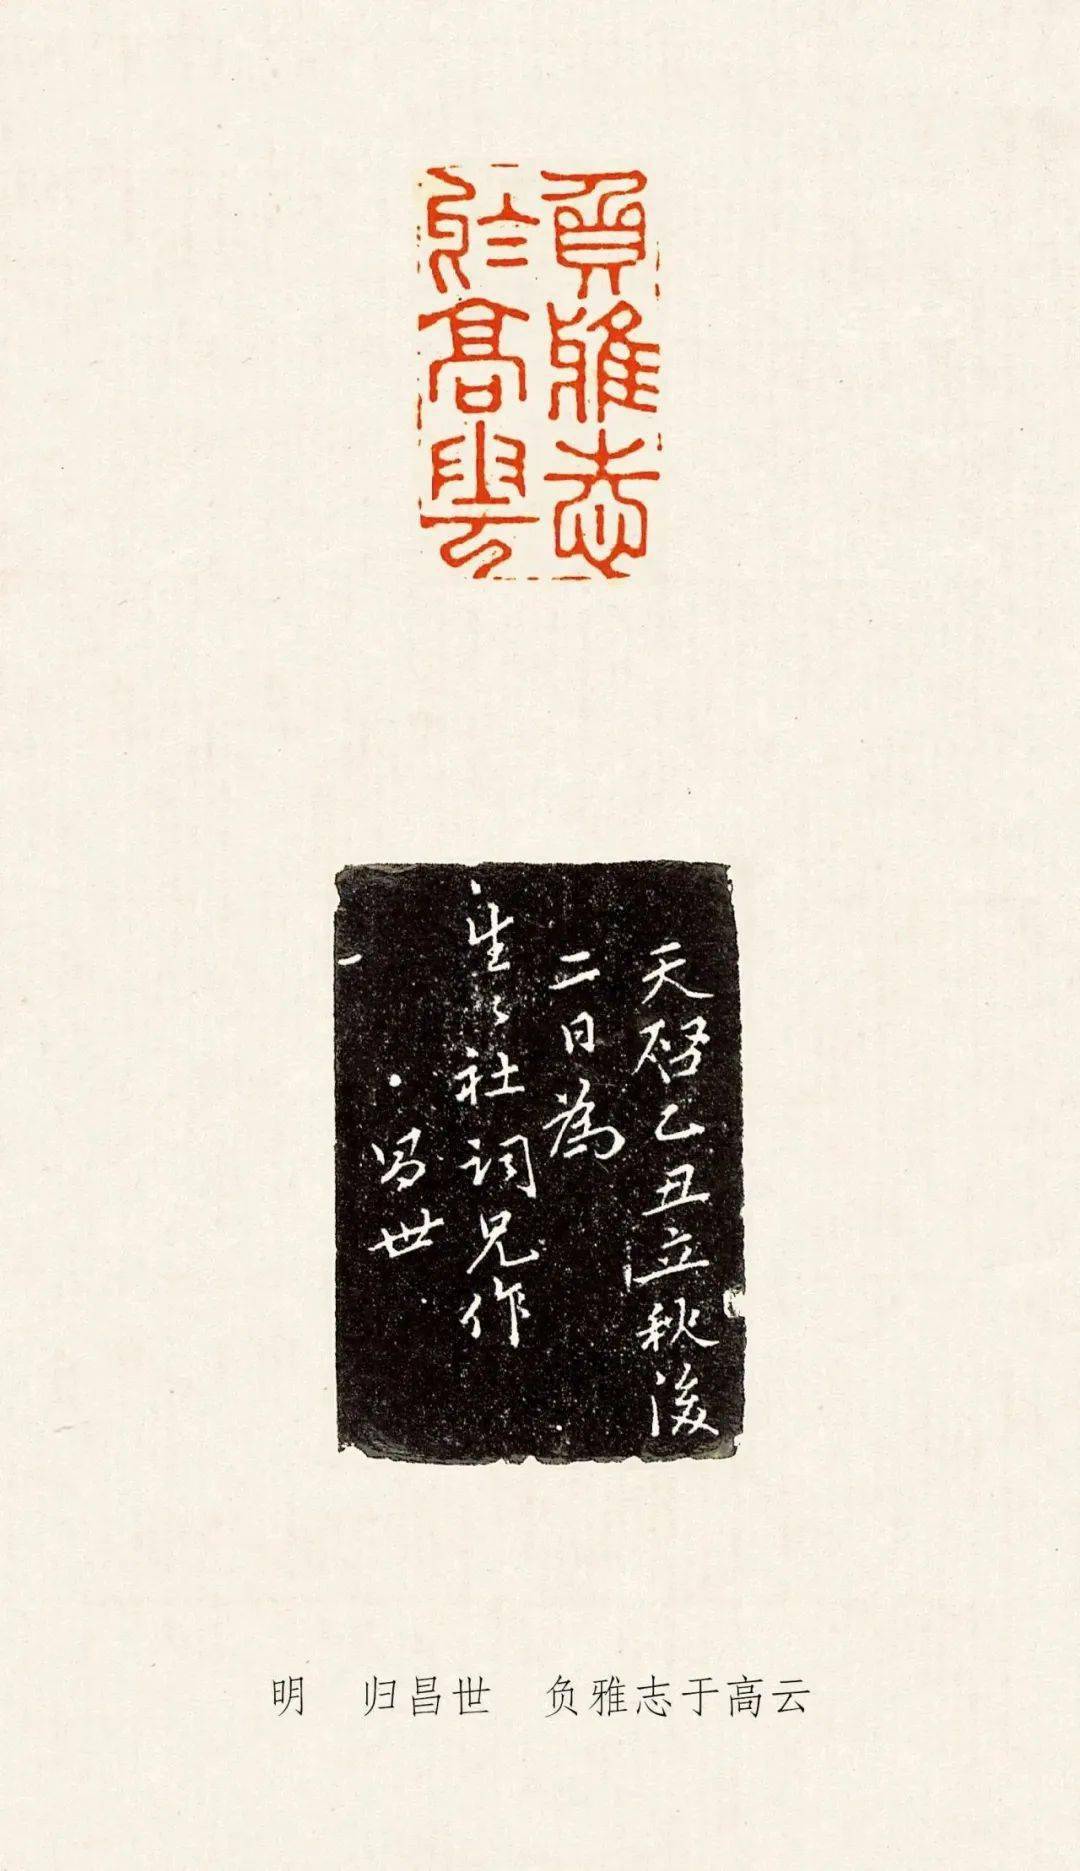 負雅志
於高雲
天啓乙丑立秋後
二日為
生〻社詞兄作
昌世
明 归昌世 负雅志于高云